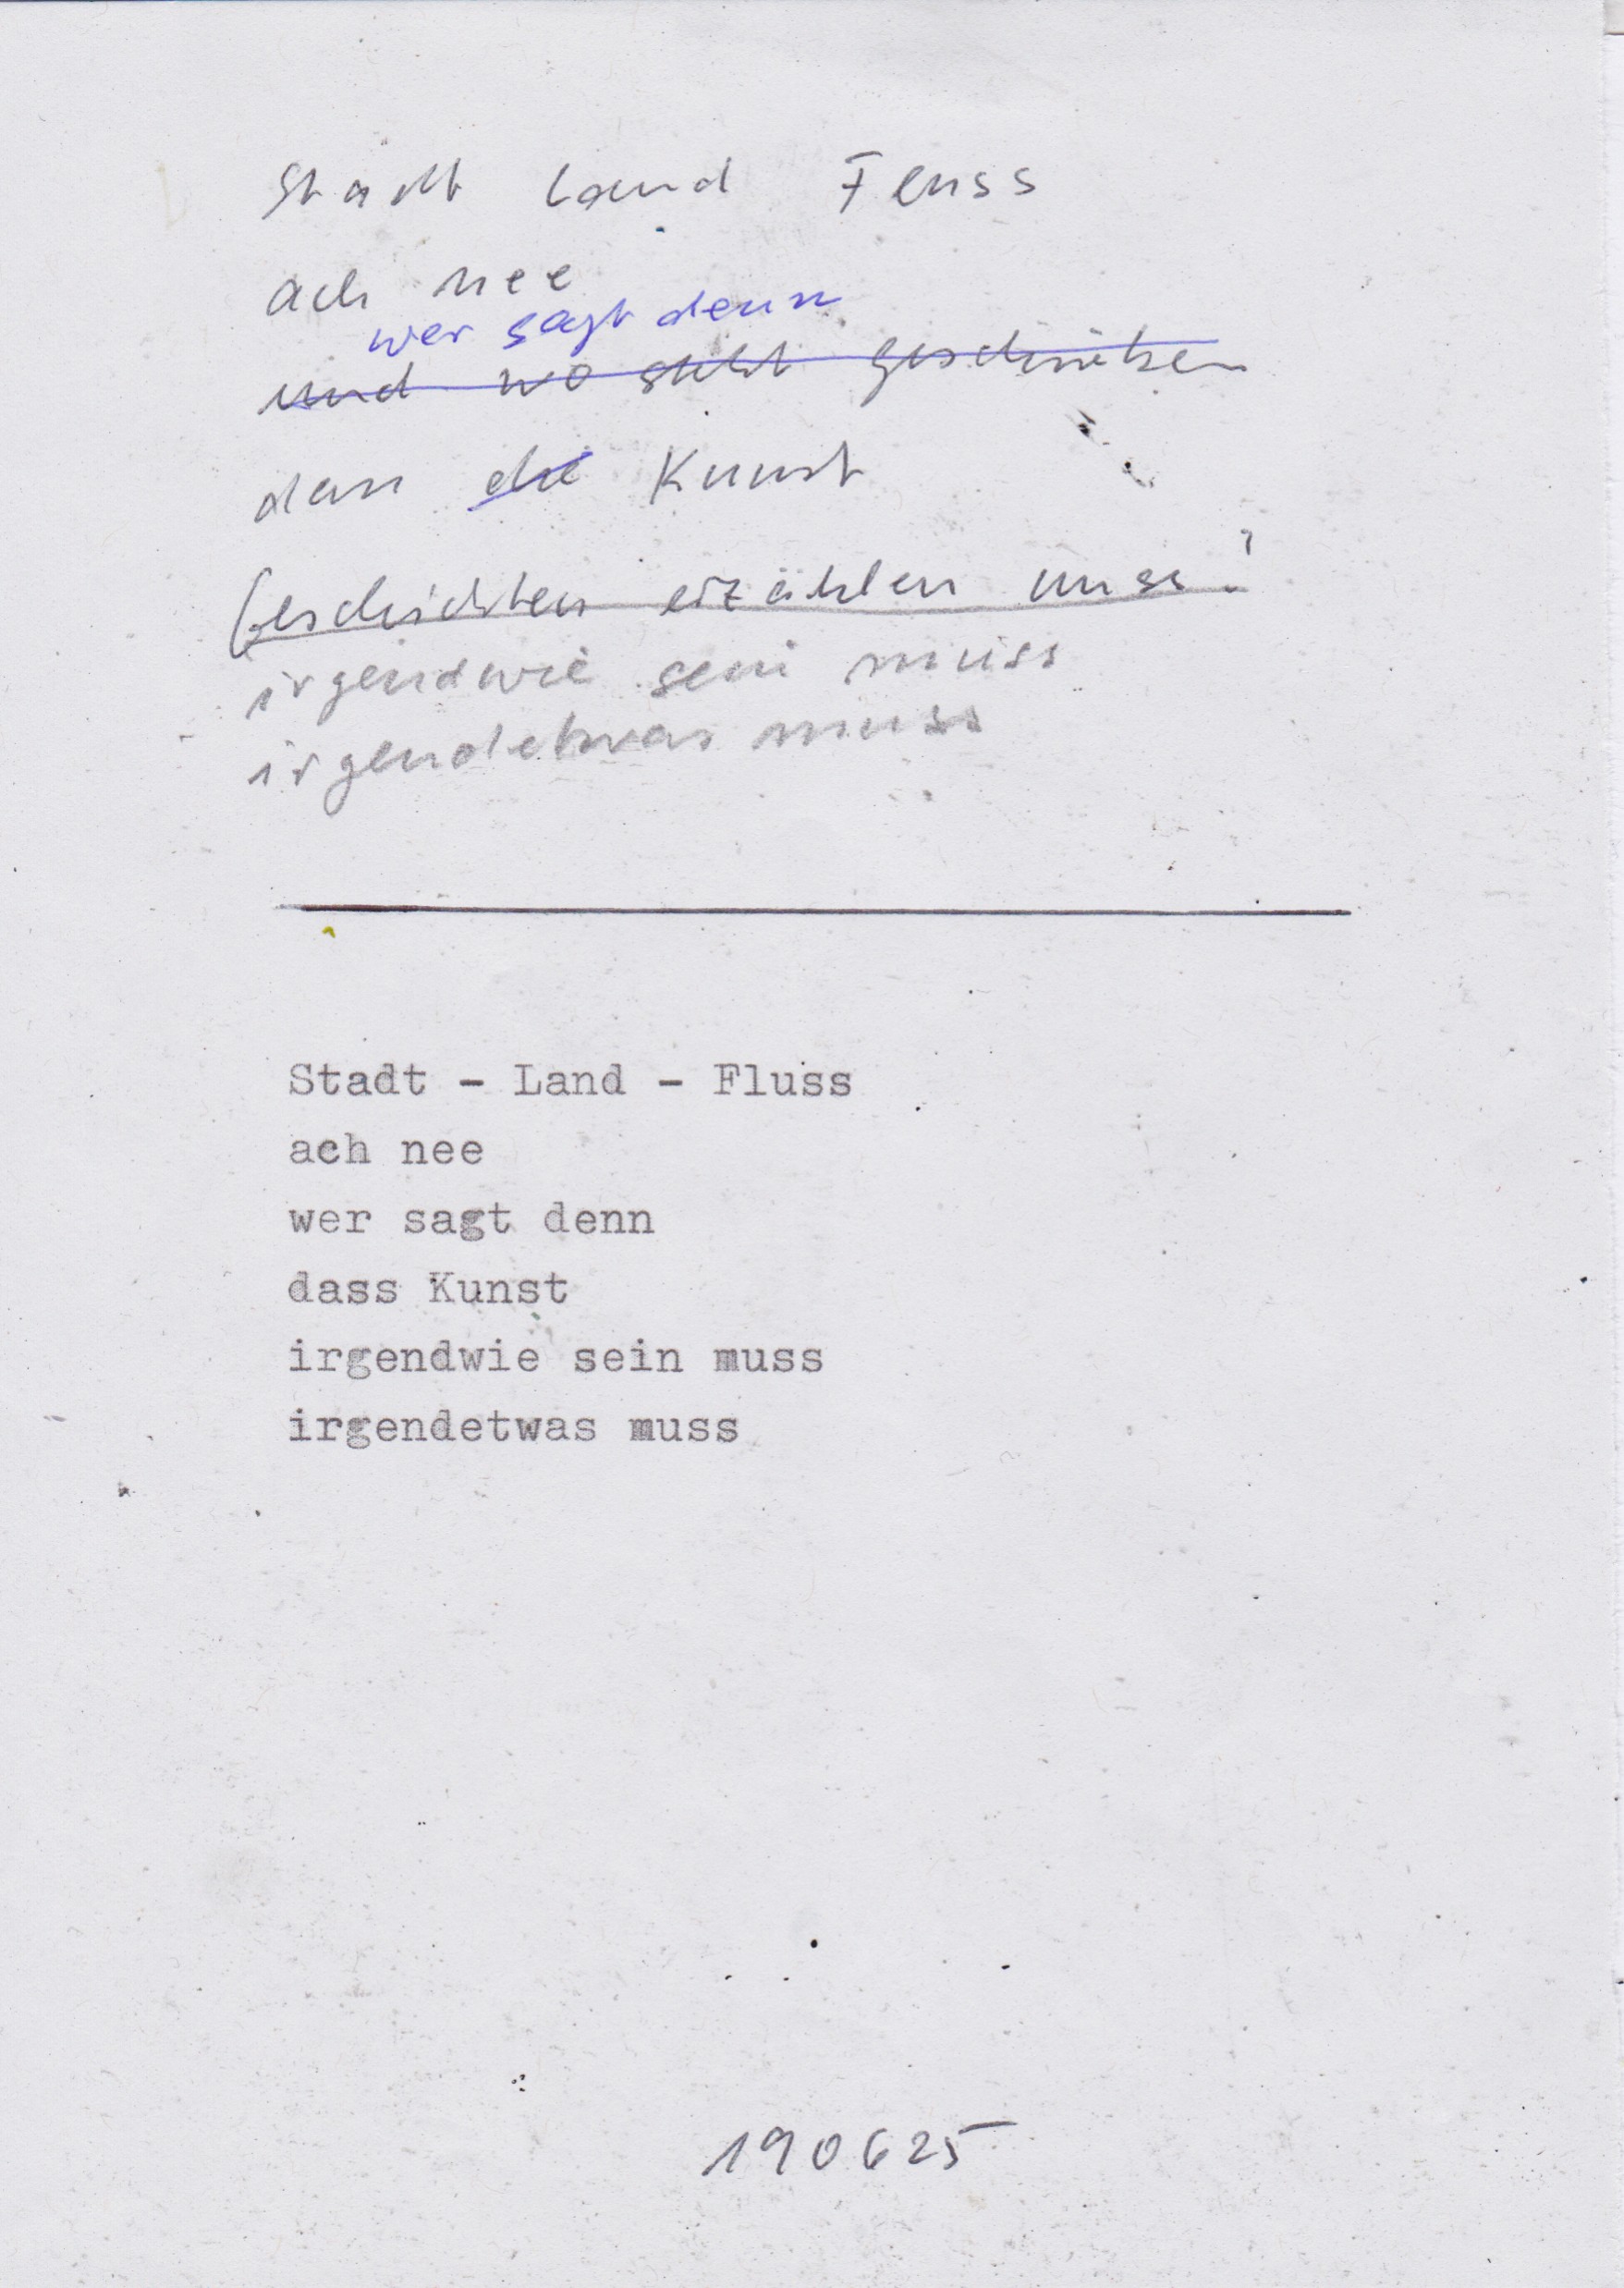 Stadt Land Fluss
ach nee
wer sagt denn
und wo steht geschrieben
dass die Kunst
Geschichten erzählen muss?
irgendwie sein muss
irgendetwas muss
Stadt - Land - Fluss
ach nee
wer sagt denn
dass Kunst
irgendwie sein muss
irgendetwas muss
190625